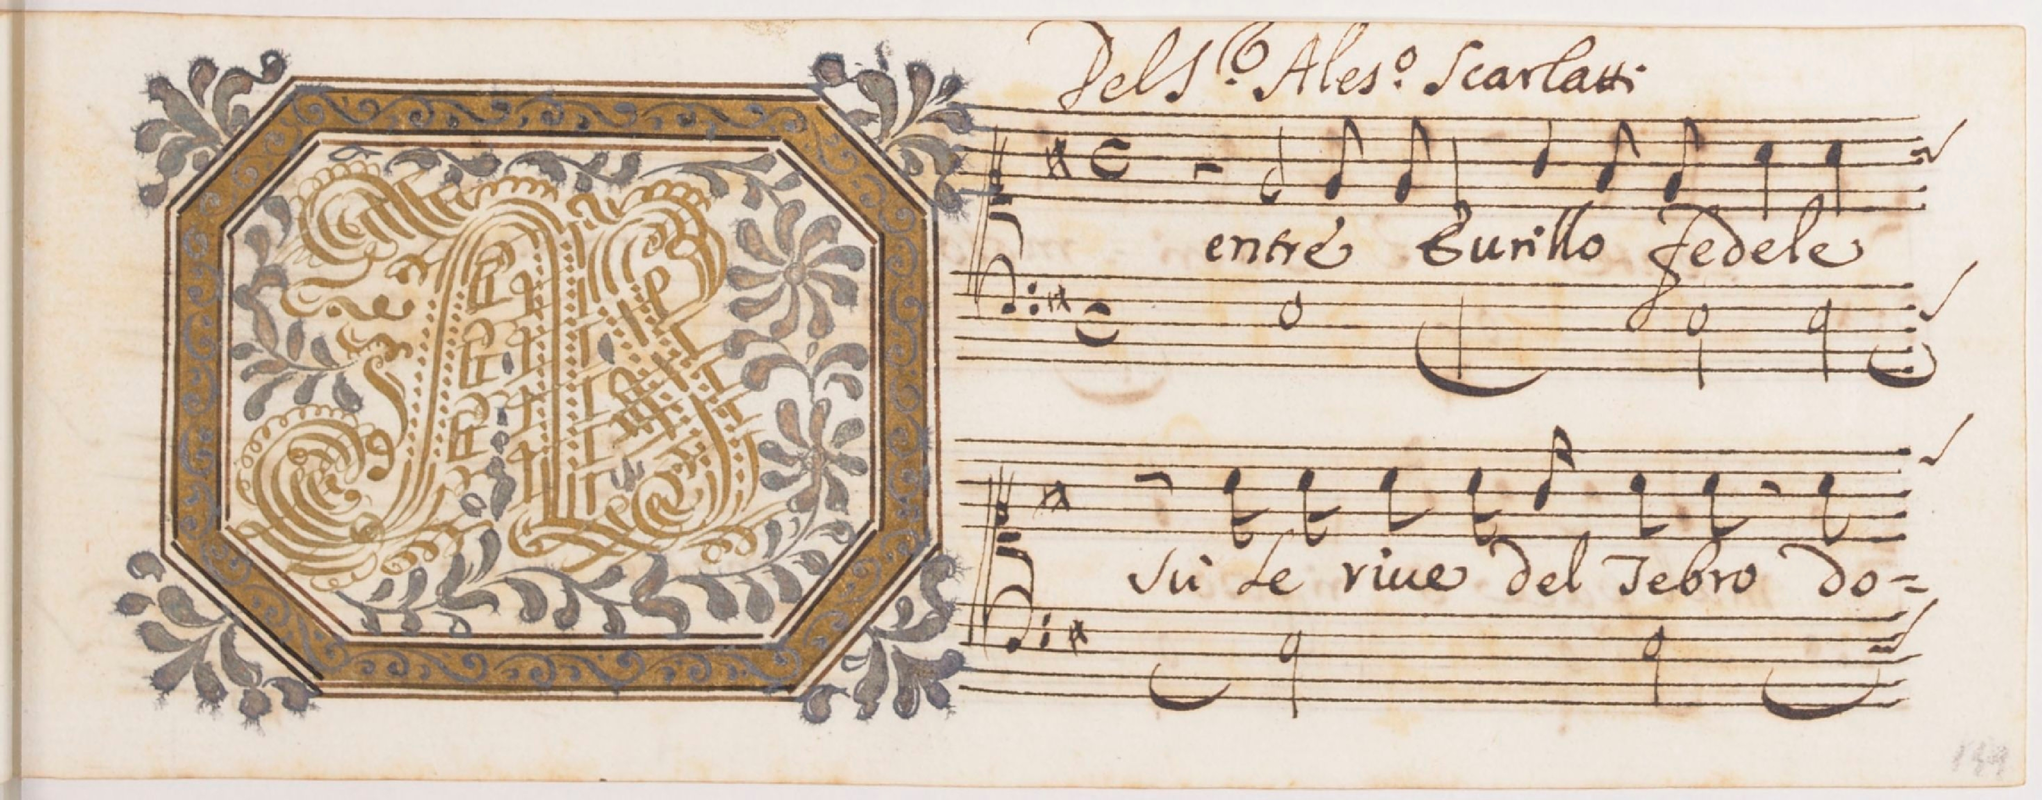 Del S.r Ales.o Scarlatti
M
entre Eurillo fedele
sù Le riue del Tebro do=